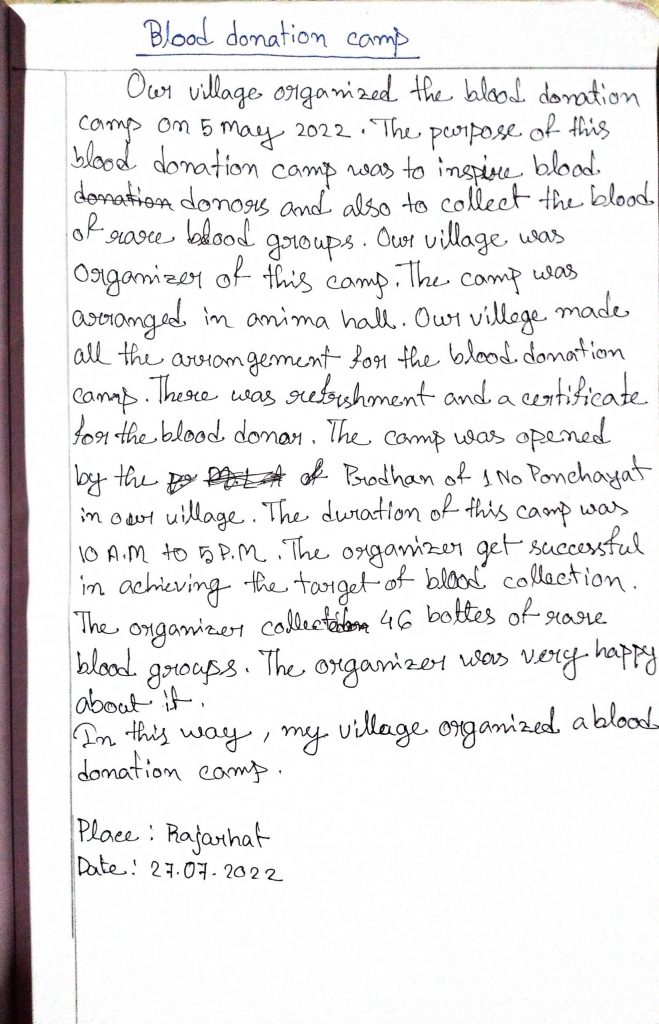 Blood donation camp
Our village organized the blood donation
camp on 5 may 2022. The purpose of this
blood donation camp was to inspire blood
donation donors and also to collect the blood
of rare blood groups. Our village was
organizer of this camp. The camp was
arranged in anima hall. Our village made
all the arrangement for the blood donation
camp. There was refreshment and a certificate
for the blood donor. The camp was opened
by the of Prodhan of 1 No Ponchayat
in our village. The duration of this camp was
10 A.M to 5 P.M. The organizer get successful
in achieving the target of blood collection.
The organizer collect 46 bottes of rare
blood groups. The organizer was very happy
about it.
In this way, my village organized a blood
donation camp.
Place : Rajarhat
Date : 27.07.2022